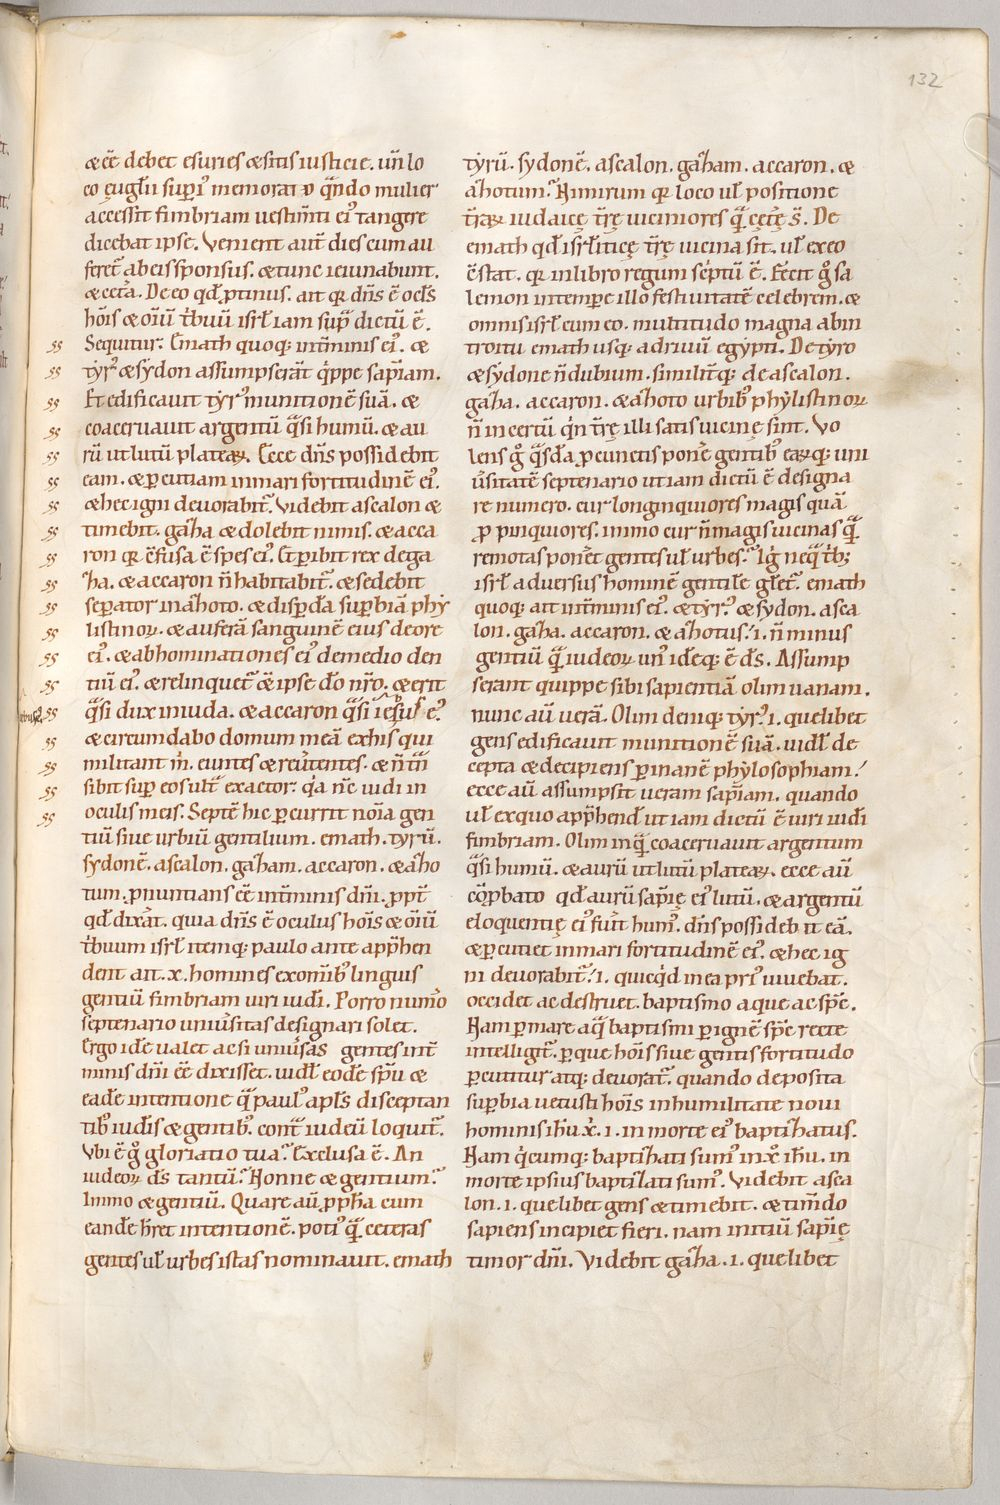 132
æ eē debet esuries æ sitis iusticie. uñ lo
co ęuglii supi᷒ memorat᷒ qñdo mulier
accessit fimbriam uestimti ei᷒ tangere
dicebat ipse. Venient aut̄ dies cum au
feret̄ ab eis sponsus. æ tunc ieiunabunt.
æ cet̃a. De eo qd̄ ptinus. ait qr dn̄s ē ocl̄s
hōis æ oīu᷒ t̄buū isrl̄ iam sup̃ dictū ē.
Sequitur. Emath quoq; in t̄minis ei᷒. æ
tyr᷒ æ sydon assumpserāt q̇ppe sap̄iam.
Et edificauit tyr᷒ munitionē suā. æ
coaceruauit argentū q̃si humū. æ au
rū ut lutū plateaꝝ. Ecce dn̄s possidebit
eam. æ ꝑcutiam in mari fortitudinē ei᷒.
æ hec igni deuorabit̄. Videbit ascalon æ
timebit. gaʒha æ dolebit nimis. æ acca
ron qr ɔfusa ē spes ei᷒. Et ꝑibit rex de ga
ʒha. æ accaron n̄ habitabit̄. æ sedebit
seꝑator in aʒhoto. æ disꝑdā suꝑbiā phy
listinoꝝ. æ auferā sanguinē eius de ore
ei᷒. æ abhominationes ei᷒ de medio den
tiū ei᷒. æ relinquet̄ æ ipse dō nr̄o. æ erit
q̃si dux in iuda. æ accaron q̃si iebuse᷒.
æ circumdabo domum meā ex his qui
militant m̄. euntes æ reu̇tentes. æ n̄ t̃n
sibit suꝑ eos ult̃ exactor. q̇a nc̄ uidi in
oculis meis. Septē hic ꝑcurrit noīa gen
tiū siue urbiū gentilium. emath. tyrū.
sydonē. ascalon. gaʒham. accaron. æ aʒho
tum. pnuntians eē in t̄minis dn̄i. ꝓpt̄
qd̄ dixat̄. quia dn̄s ē oculus hōis æ oīu᷒
t̄buum isrl̄ itemq; paulo ante app̄hen
dent ait. x. homines ex om̄ib᷒ linguis
gentiū fimbriam uiri iudi̅. Porro num̄o
septenario uniu̇sitas designari solet.
Ergo idē ualet ac si uniu̇sas gentes in t̄
minis dn̄i eē dixisset. uidl̄ eodē spu̅ æ
eadē intentione q̃ paul᷒ apl̄s disceptan
tib᷒ iudi̅s æ gentib᷒. cont̃ iudeū loquit̄.
Vbi ē g᷒ gloriatio tua? Exclusa ē. An
iudeoꝝ d̄s tantū? Nonne æ gentium?
Immo æ gentiū. Quare au̅ ꝓph̄a cum
eandē h̄ret intentionē. poti᷒ q̃ ceteras
gentes ul̄ urbes istas nominauit. emath
tyrū. sydonē. ascalon. gaʒham. accaron. æ
aʒhotum? Nimirum qr loco ul̄ positione
t̄raꝝ iudaicę t̄rę uiciniores q̃ cet̄ę s̄. De
emath qd̄ isrl̄iticę t̄rę uicina sit. ul̄ ex eo
ɔstat. qr in libro regum sc̄ptū ē. Fecit g᷒ sa
lemon in tempe illo festiuitatē celebrem. æ
omnis isrl̄ cum eo. multitudo magna ab in
troitu emath usq; ad riuū egypti. De tyro
æ sydone n̄ dubium. similit̄q; de ascalon.
gaʒha. accaron. æ aʒhoto urbib᷒ phylistinoꝝ
n̄ incertū q̇n t̄rę illi satis uicinę sint. Vo
lens g᷒ q̃sdā ꝓ cunctis ponē gentib᷒ eaꝝq; uni
u̇sitatē septenario ut iam dictū ē designa
re numero. cur longinquiores magis quā
ꝓpinquiores. immo cur n̄ magis uicinas q̃
remotas ponēt gentes ul̄ urbes? Ig̅ neq̃ t̄b;
isrl̄ aduersus hominē gentilē gl̄et̄. emath
quoq; ait in t̄minis ei᷒. æ tyr᷒. æ sydon. asca
lon. gaʒha. accaron. æ aʒhotus! .i. n̄ minus
gentiū q̃ iudeoꝝ un᷒ idēq; ē d̄s. Assump
serant quippe sibi sapientiā olim uanam.
nunc au̅ uerā. Olim deniq; tyr᷒ .i. quelibet
gens edificauit munitionē suā. uidl̄ de
cepta æ decipiens ꝑ inanē phylosophiam!
ecce au̅ assumpsit ueram sap̄iam. quando
ul̄ ex quo app̄hend̄ ut iam dictū ē uiri iudi̅
fimbriam. Olim inq̃ coaceruauit argentum
q̃si humū. æ aurū ut lutū plateaꝝ. ecce au̅
cōꝓbato qd̄ aurū sap̄ię ei᷒ lutū. æ argentū
eloquentię ei᷒ fu̇it hum᷒. dn̄s possidebit eā.
æ ꝑcutiet in mari fortitudinē ei᷒. æ hec ig
ni deuorabit̄! .i. quicq̇d in ea pri᷒ uiuebat.
occidet ac destruet. baptismo aque ac spc̄.
Nam ꝑ mare aq̃ baptismi ꝑ ignē spc̄ recte
intelligit̄. ꝑ que hōis siue gentis fortitudo
ꝑcutitur atq; deuorat̄. quando deposita
suꝑbia uetusti hōis in humilitate noui
hominis ih̄u x̄. .i. in morte ei᷒ baptiʒhatus.
Nam q̇cumq; baptiʒhati sum᷒ in x̄ ih̄u. in
morte ipsius baptiʒati sum᷒. Videbit asca
lon .i. quelibet gens æ timebit. æ tim̄do
sapiens incipiet fieri. nam initiū sap̄ię
timor dn̄i. Videbit gaʒha .i. quelibet